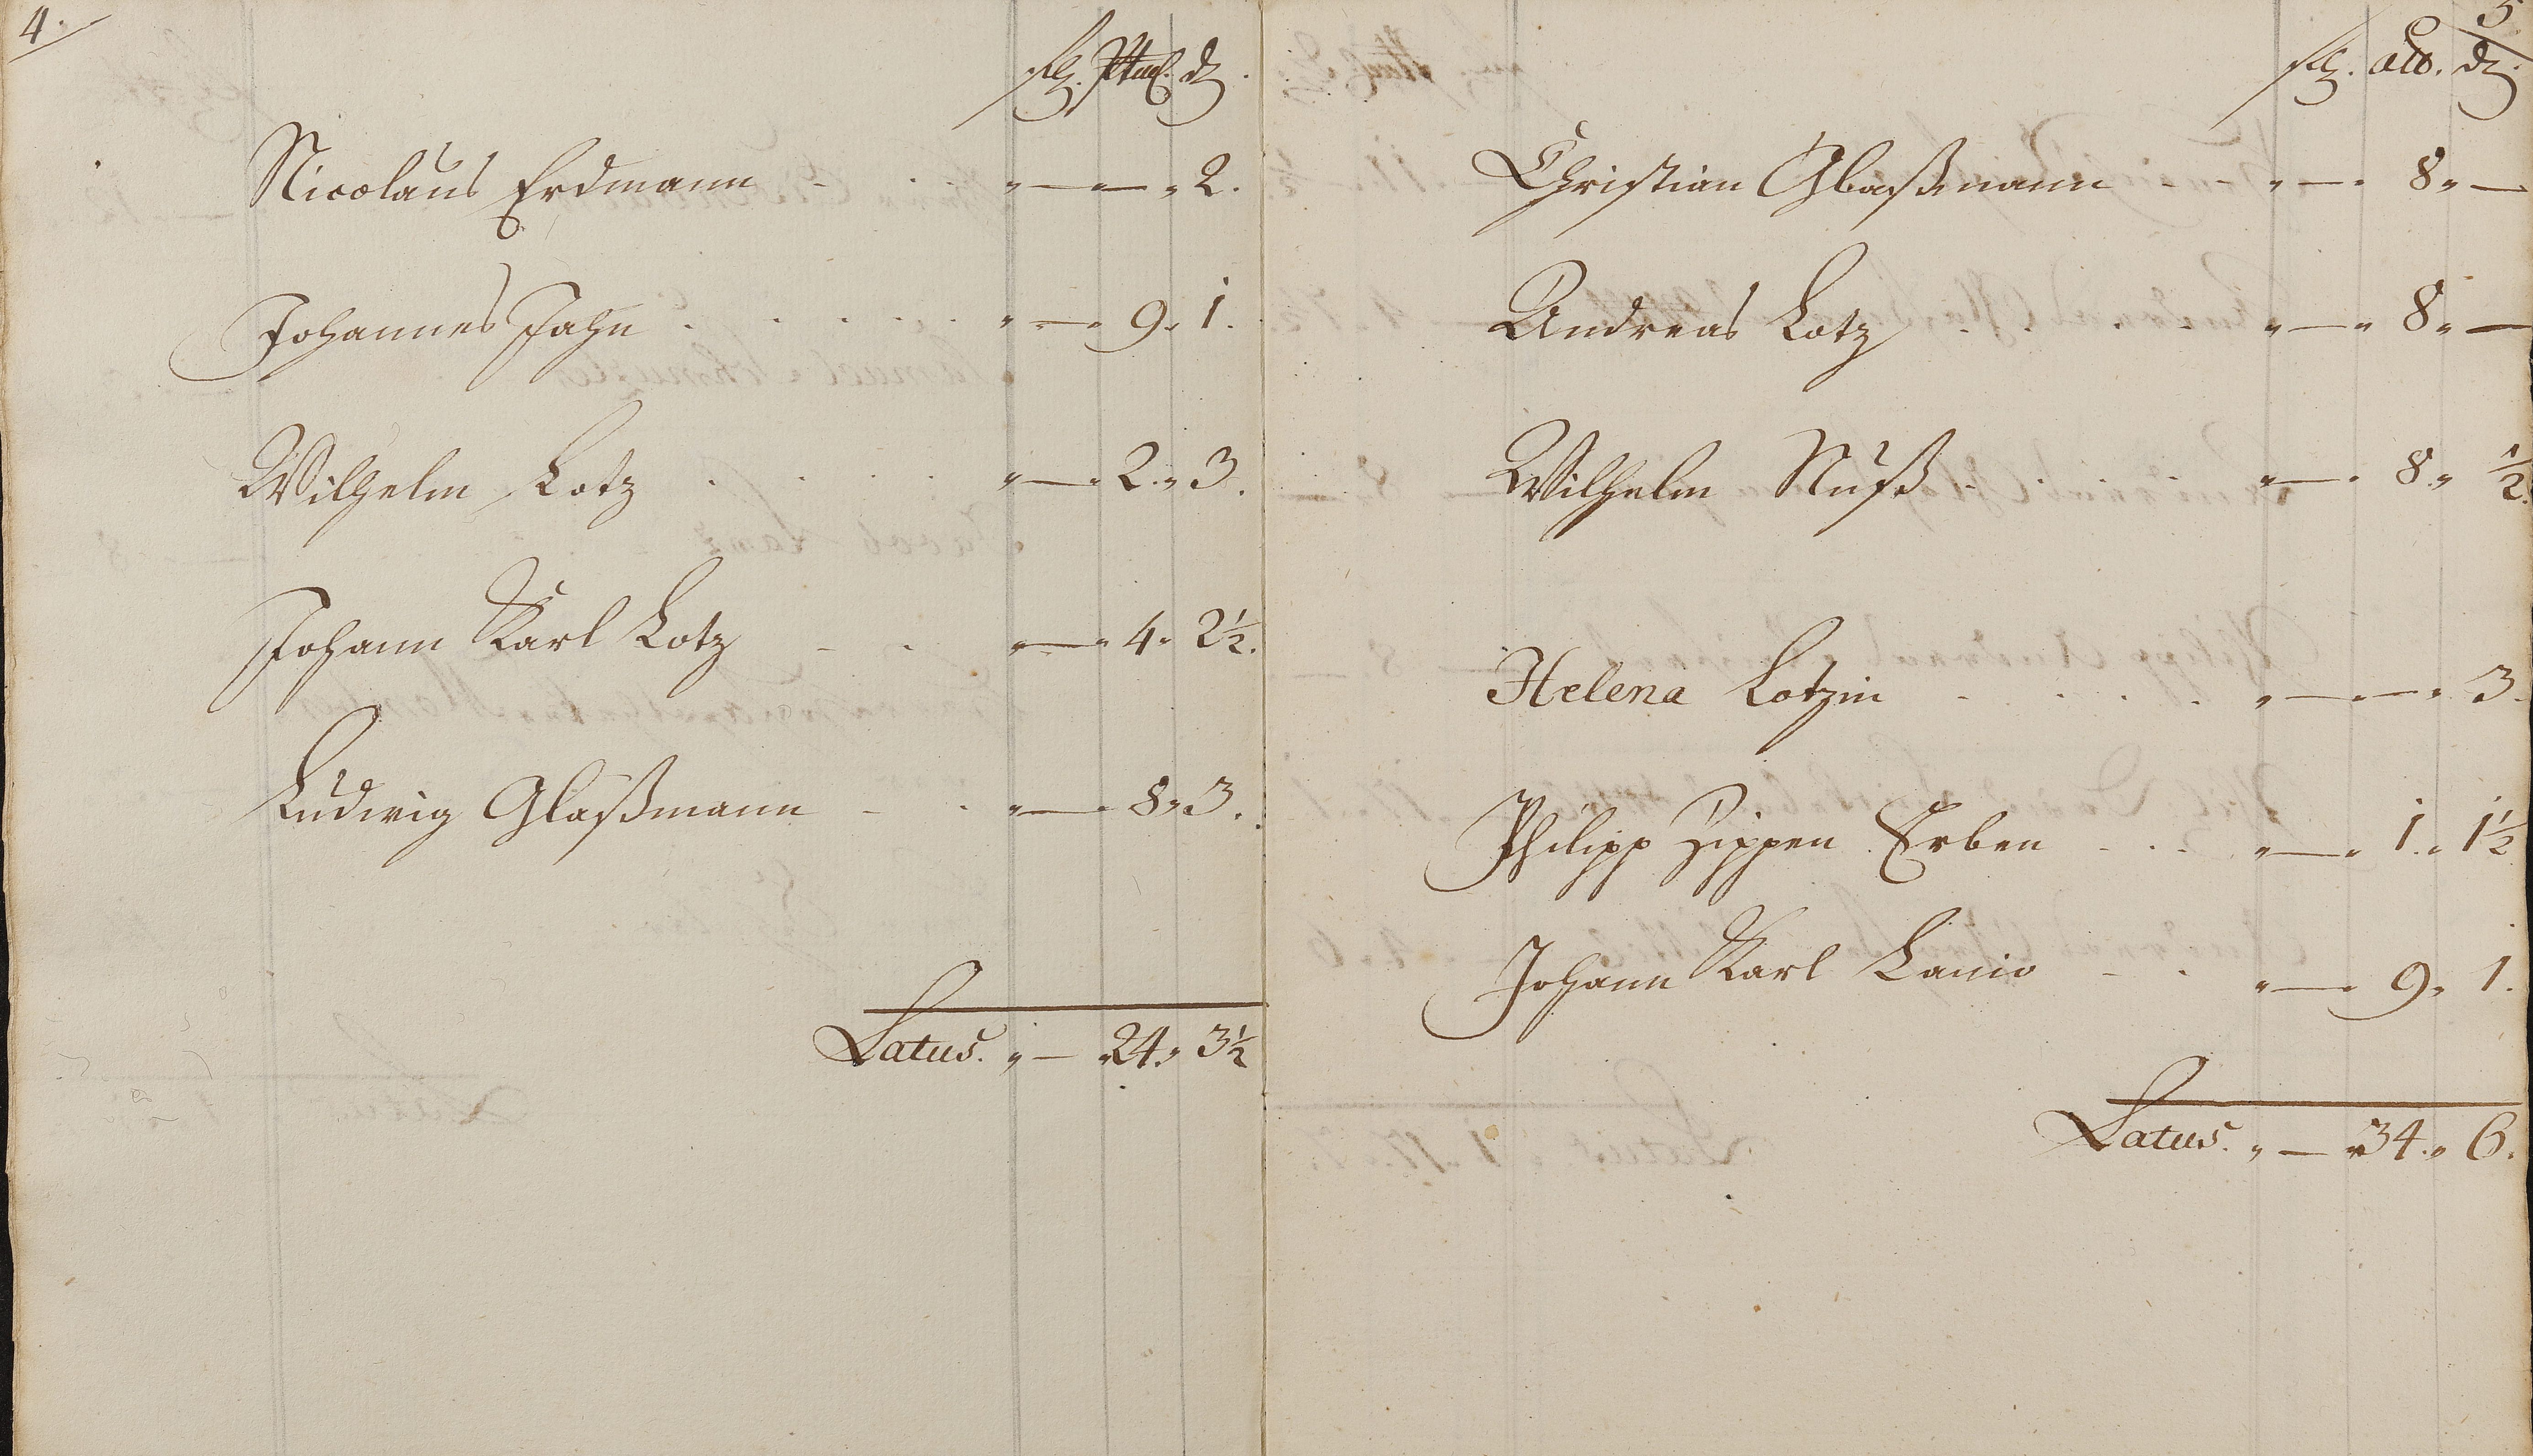 4.
fl. dz.
Nicolaus Erdmann - . . „ — „ — „ 2.
Johannes Jahn . . . . . . „ — „ 9. 1.
Wilhelm Lotz . . . . „ — „ 2. „ 3.
Johann Karl Lotz - . „ — „ 4 „ 2½.
Ludwig Glaßmann - . „ — „ 8 „ 3.
Latus. „ — „ 24. „ 3½
5
fl. alb. dz.
Christian Glaßmann - - „ — „ 8 „ —
Andreas Lotz . . . . „ — „ 8 „ —
Wilhelm Nuß . . . . „ — „ 8 „ ½.
Helena Lotzin - . . . „ — „ — „ 3.
Philipp Zippen Erben - . - „ — „ 1. „ 1½
Johann Karl Lanio - . „ — „ 9 „ 1.
Latus. „ — „ 34. „ 6.